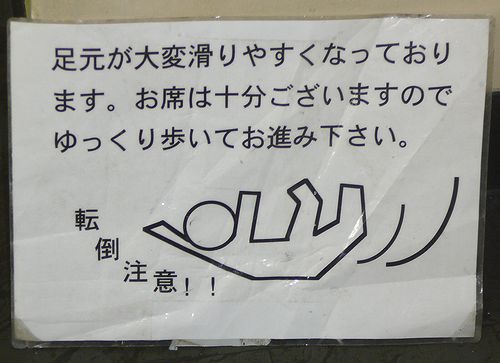 足元が大変滑りやすくなっており
ます。お席は十分ございますので
ゆっくり歩いてお進み下さい。
転倒注意!!